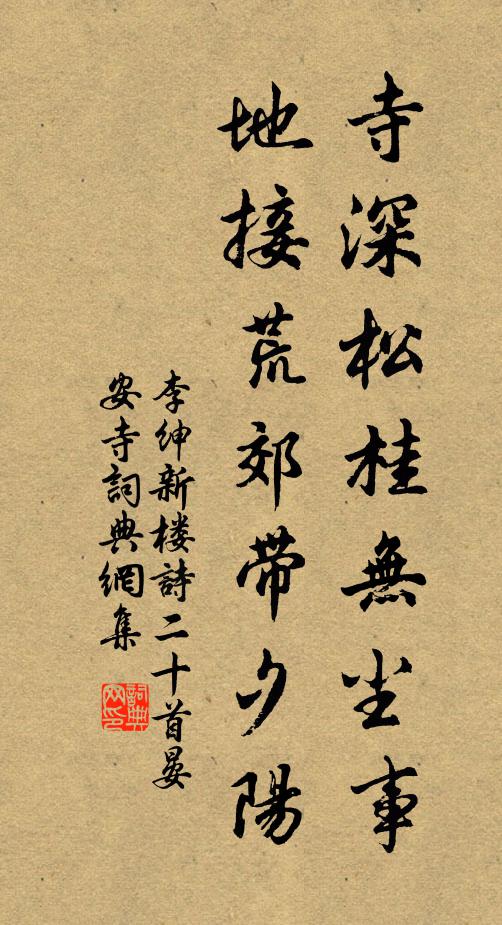 寺深松桂無尘事
地接荒郊帶夕陽
李绅新楼詩二十首晏
安寺詞典網集
詞典
网印